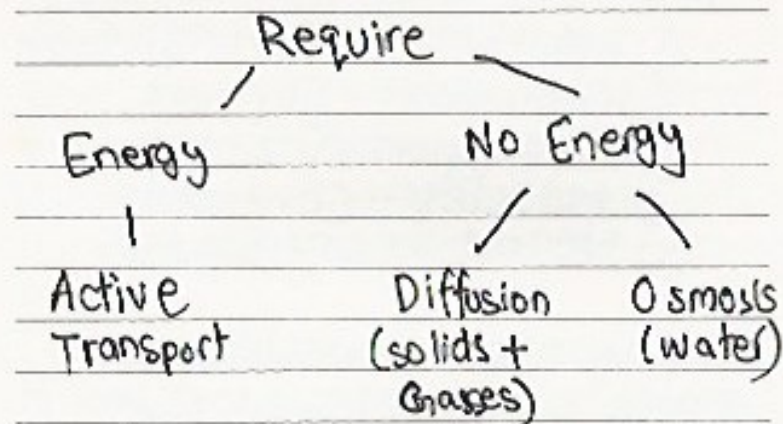 Require
Energy
No Energy
Active
Transport
Diffusion
(solids +
Gasses)
Osmosis
(water)